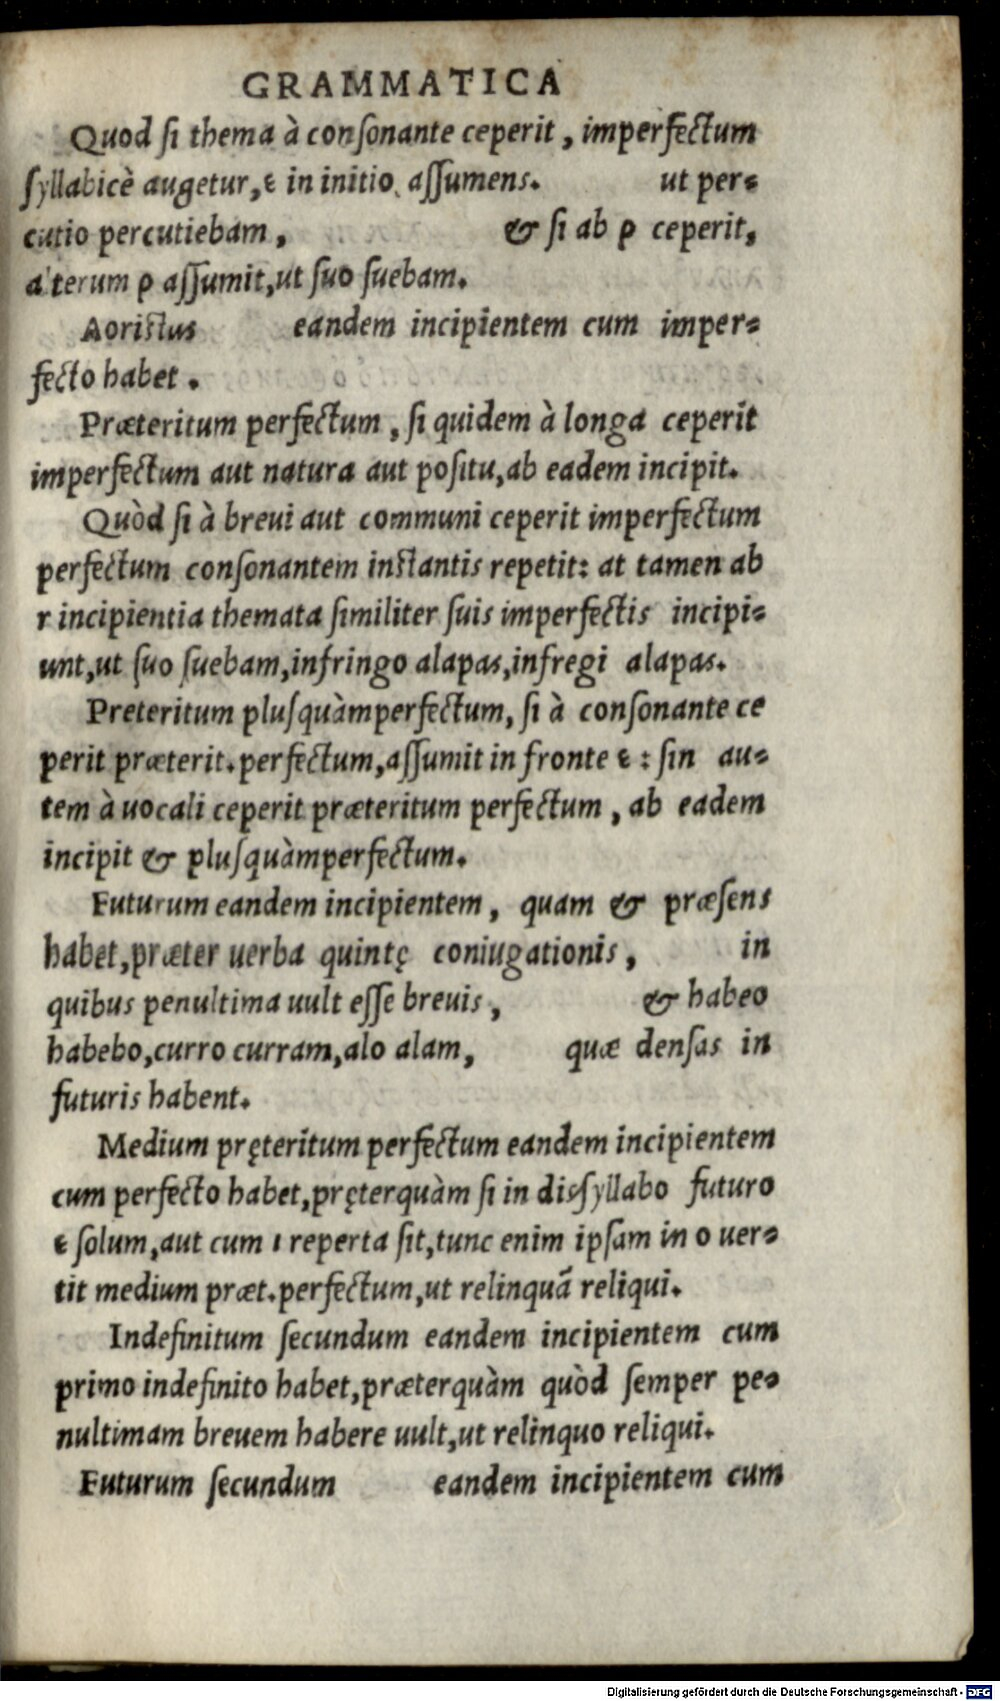 GRAMMATICA
Quod ſi thema à conſonante ceperit, imperfectum
ſyllabicè augetur, ε in initio aſſumens. ut per-
cutio percutiebam, & ſi ab ρ ceperit,
alterum ρ aſſumit, ut ſuo ſuebam.
Aoristus eandem incipientem cum imper-
fecto habet.
Præteritum perfectum, ſi quidem à longa ceperit
imperfectum aut natura aut poſitu, ab eadem incipit.
Quòd ſi à breui aut communi ceperit imperfectum
perfectum conſonantem instantis repetit: at tamen ab
r incipientia themata ſimiliter ſuis imperfectis incipi-
unt, ut ſuo ſuebam, infringo alapas, infregi alapas.
Preteritum pluſquàmperfectum, ſi à conſonante ce
perit præterit. perfectum, aſſumit in fronte ε: ſin au-
tem à uocali ceperit præteritum perfectum, ab eadem
incipit & pluſquàmperfectum.
Futurum eandem incipientem, quam & præſens
habet, præter uerba quintę coniugationis, in
quibus penultima uult eſſe breuis, & habeo
habebo, curro curram, alo alam, quæ denſas in
futuris habent.
Medium pręteritum perfectum eandem incipientem
cum perfecto habet, pręterquàm ſi in disſyllabo futuro
ε ſolum, aut cum ι reperta ſit, tunc enim ipſam in o uer-
tit medium præt. perfectum, ut relinquã reliqui.
Indefinitum ſecundum eandem incipientem cum
primo indefinito habet, præterquàm quòd ſemper pe-
nultimam breuem habere uult, ut relinquo reliqui.
Futurum ſecundum eandem incipientem cum
Digitalisierung gefördert durch die Deutsche Forschungsgemeinschaft - DFG